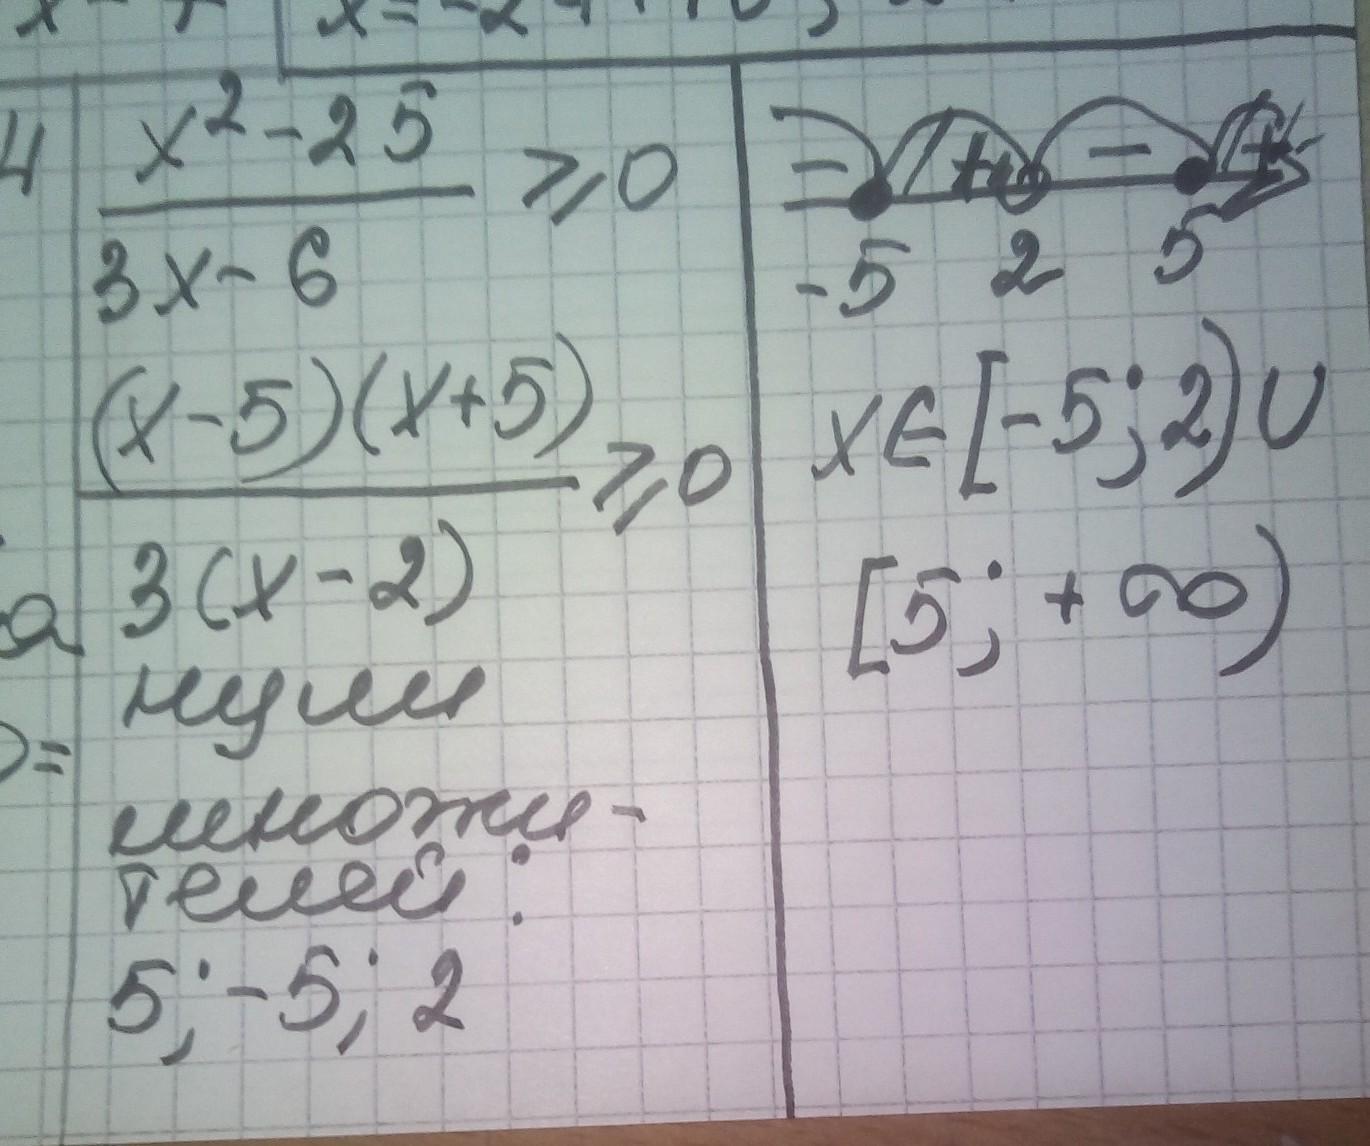 4
x² - 25
⩾ 0
3x - 6
(x-5)(x+5)
⩾ 0
3(x-2)
нули
множи-
телей:
5; -5; 2
а
=
- + - +
-5 2 5
x∈[-5; 2)∪
[5; +∞)